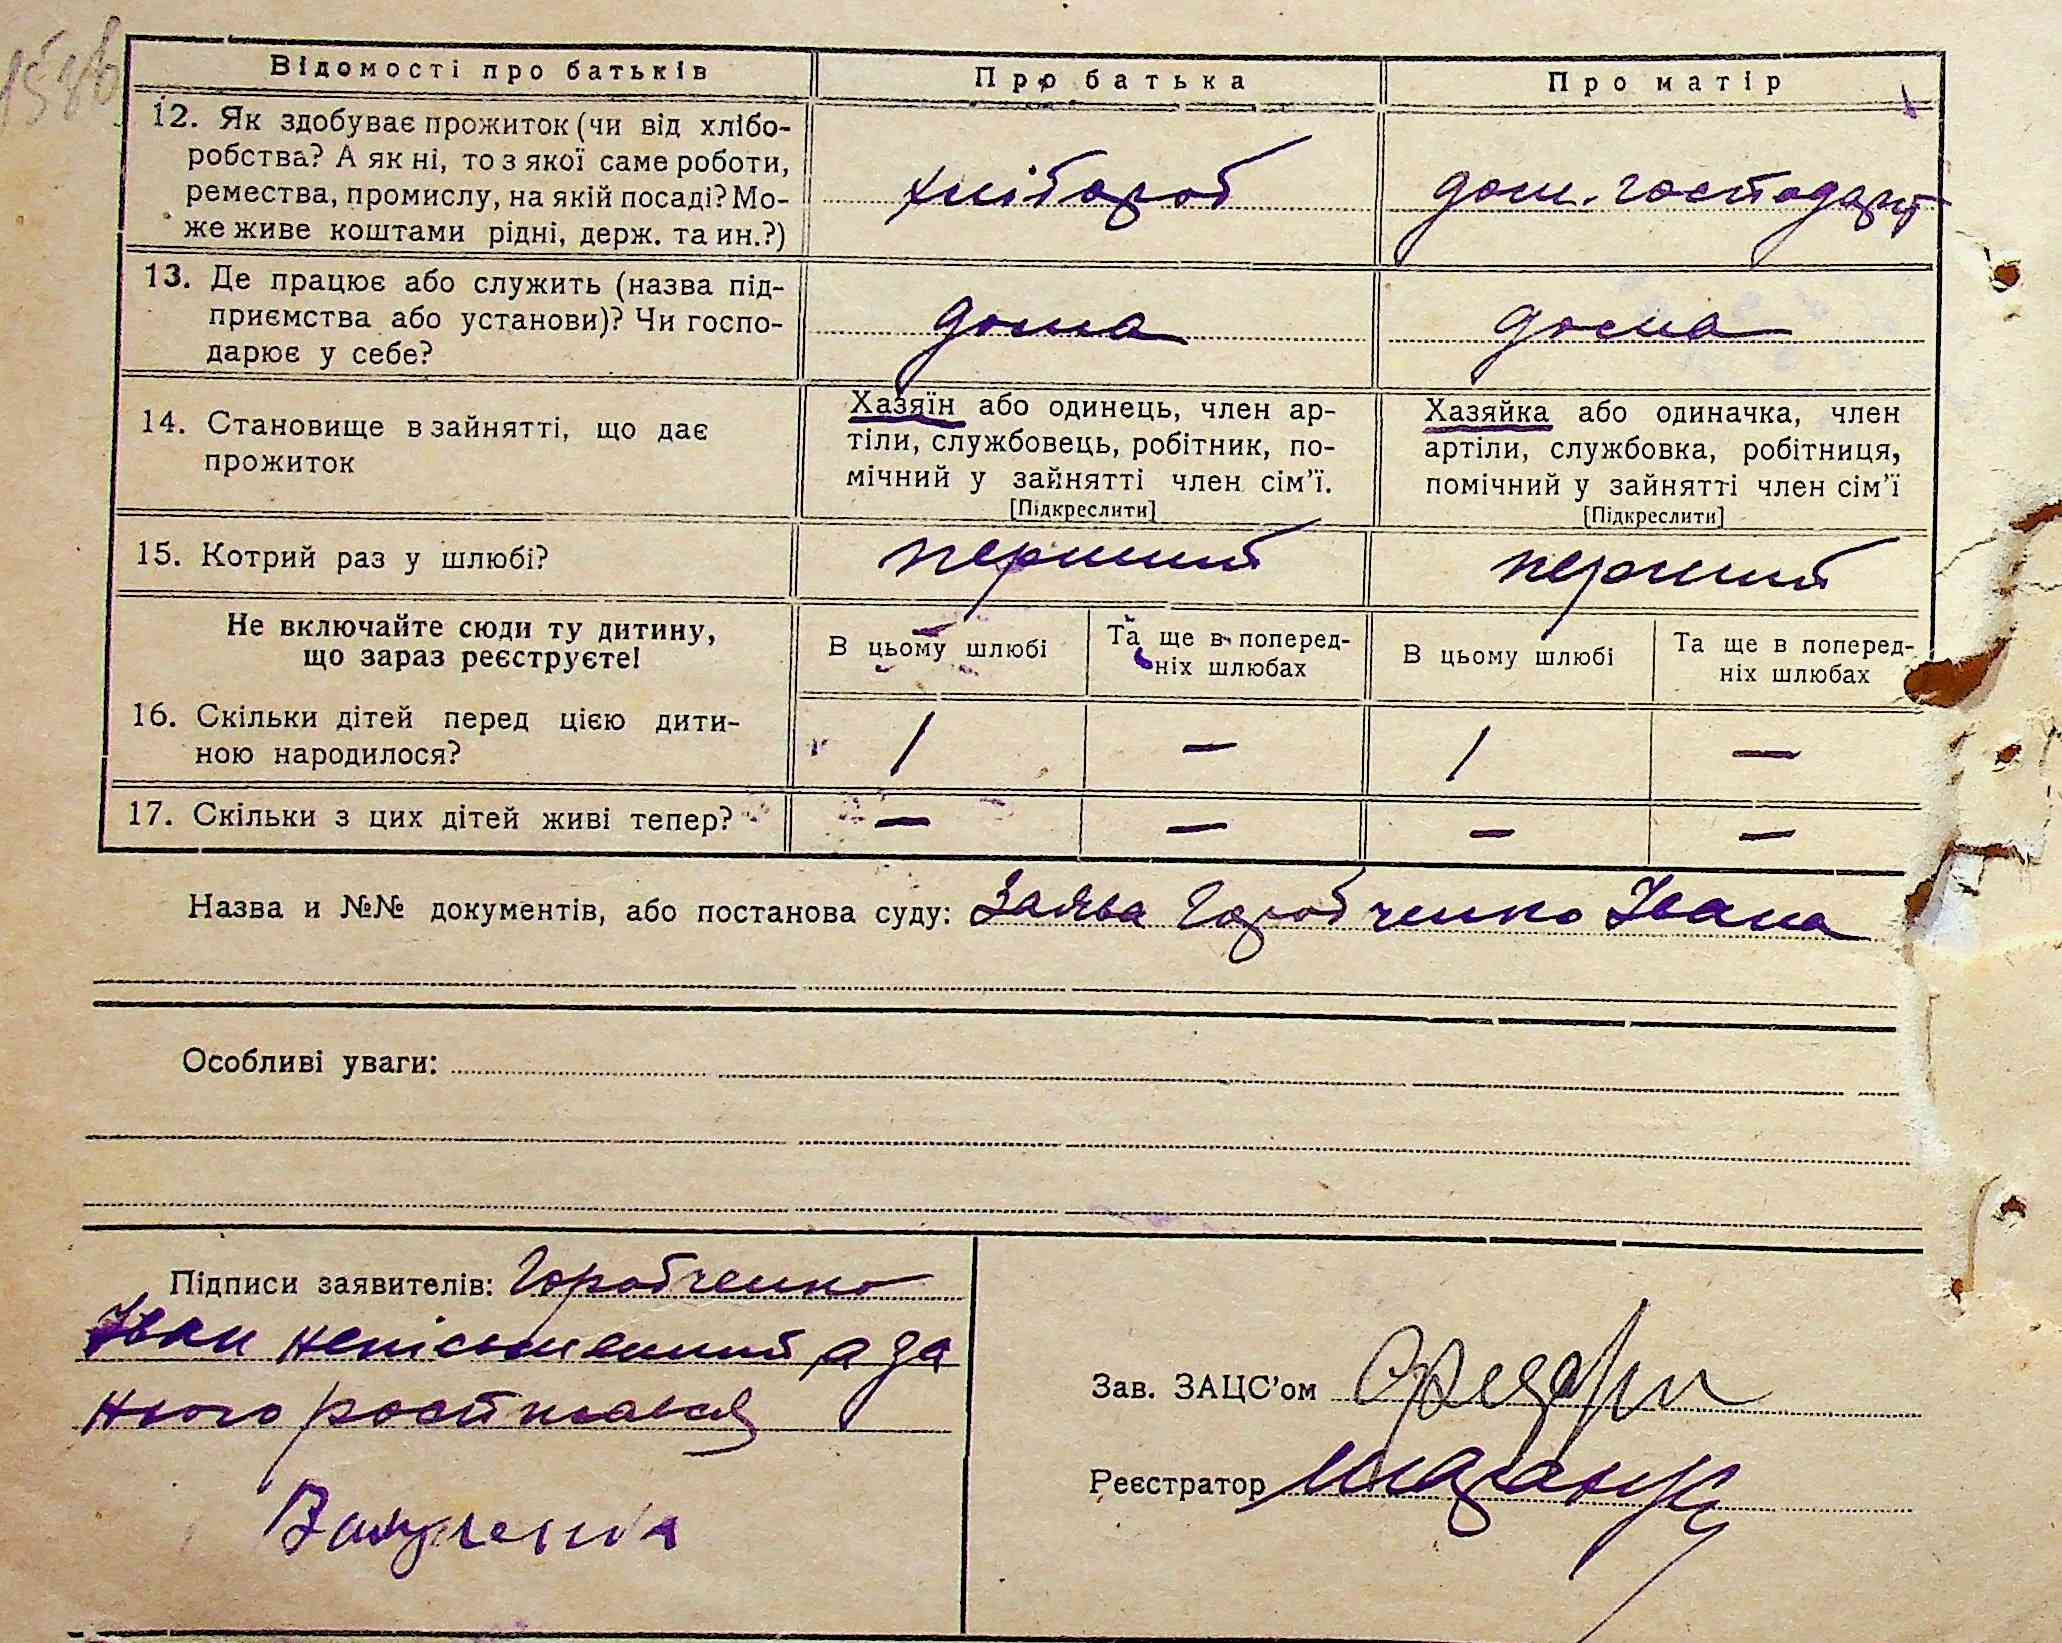 158в
Відомості про батьків
Про батька
Про матір
12. Як здобуває прожиток (чи від хлібо-
робства? А як ні, то з якої саме роботи,
ремества, промислу, на якій посаді? Мо-
же живе коштами рідні, держ. та ин.?)
хлібороб
дом. господарст
13. Де працює або служить (назва під-
приємства або установи)? Чи госпо-
дарює у себе?
дома
дома
14. Становище в зайнятті, що дає
прожиток
Хазяїн або одинець, член ар-
тіли, службовець, робітник, по-
мічний у зайнятті член сім'ї.
[Підкреслити]
Хазяйка або одиначка, член
артіли, службовка, робітниця,
помічний у зайнятті член сім'ї
[Підкреслити]
15. Котрий раз у шлюбі?
перший
перший
Не включайте сюди ту дитину,
що зараз реєструєте!
В цьому шлюбі
Та ще в поперед-
ніх шлюбах
В цьому шлюбі
Та ще в поперед-
ніх шлюбах
16. Скільки дітей перед цією дити-
ною народилося?
1
—
1
—
17. Скільки з цих дітей живі тепер?
—
—
—
—
Назва и №№ документів, або постанова суду: Заява Горобченко Івана
Особливі уваги:
Підписи заявителів: Горобченко
Іван непісьменний а за
нього ростисався
Зав. ЗАЦС'ом
Реєстратор